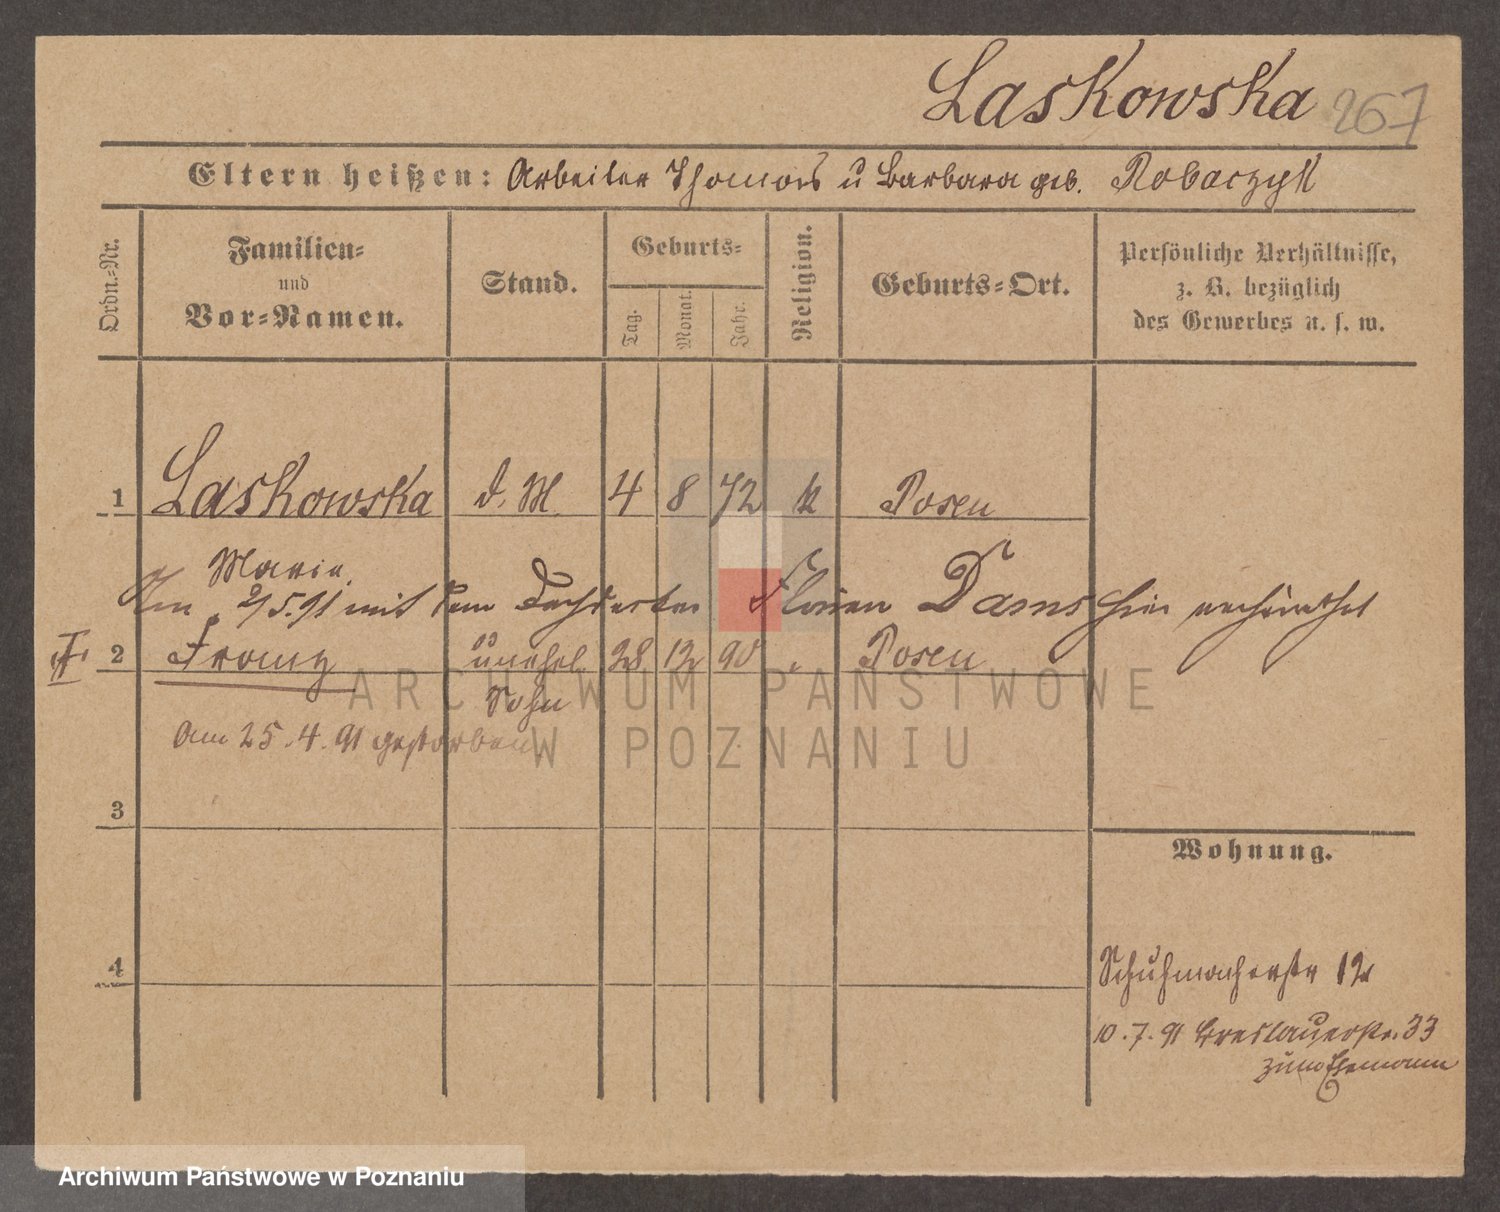 Laskowska 267
Eltern heißen: Arbeiter Thomas u Barbara geb. Robaczyk
Ordn.-Nr.
Familien-
und
Vor-Namen.
Stand.
Geburts-
Tag.
Monat.
Jahr.
Religion.
Geburts-Ort.
Persönliche Verhältnisse,
z. B. bezüglich
des Gewerbes u. s. w.
1 Laskowska d. M. 4 8 72 k Posen
Marie
Am 2/5.91 mit dem Dachdecker Florian Dams hier verheirathet
2 Franz unehel. 28 12 90 " Posen
Sohn
Am 25.4.91 gestorben
3
Wohnung.
4
Schuhmacherstr 12
10.7.91 Breslauerstr. 33
zum Ehemann
ARCHIWUM PAŃSTWOWE
W POZNANIU
Archiwum Państwowe w Poznaniu